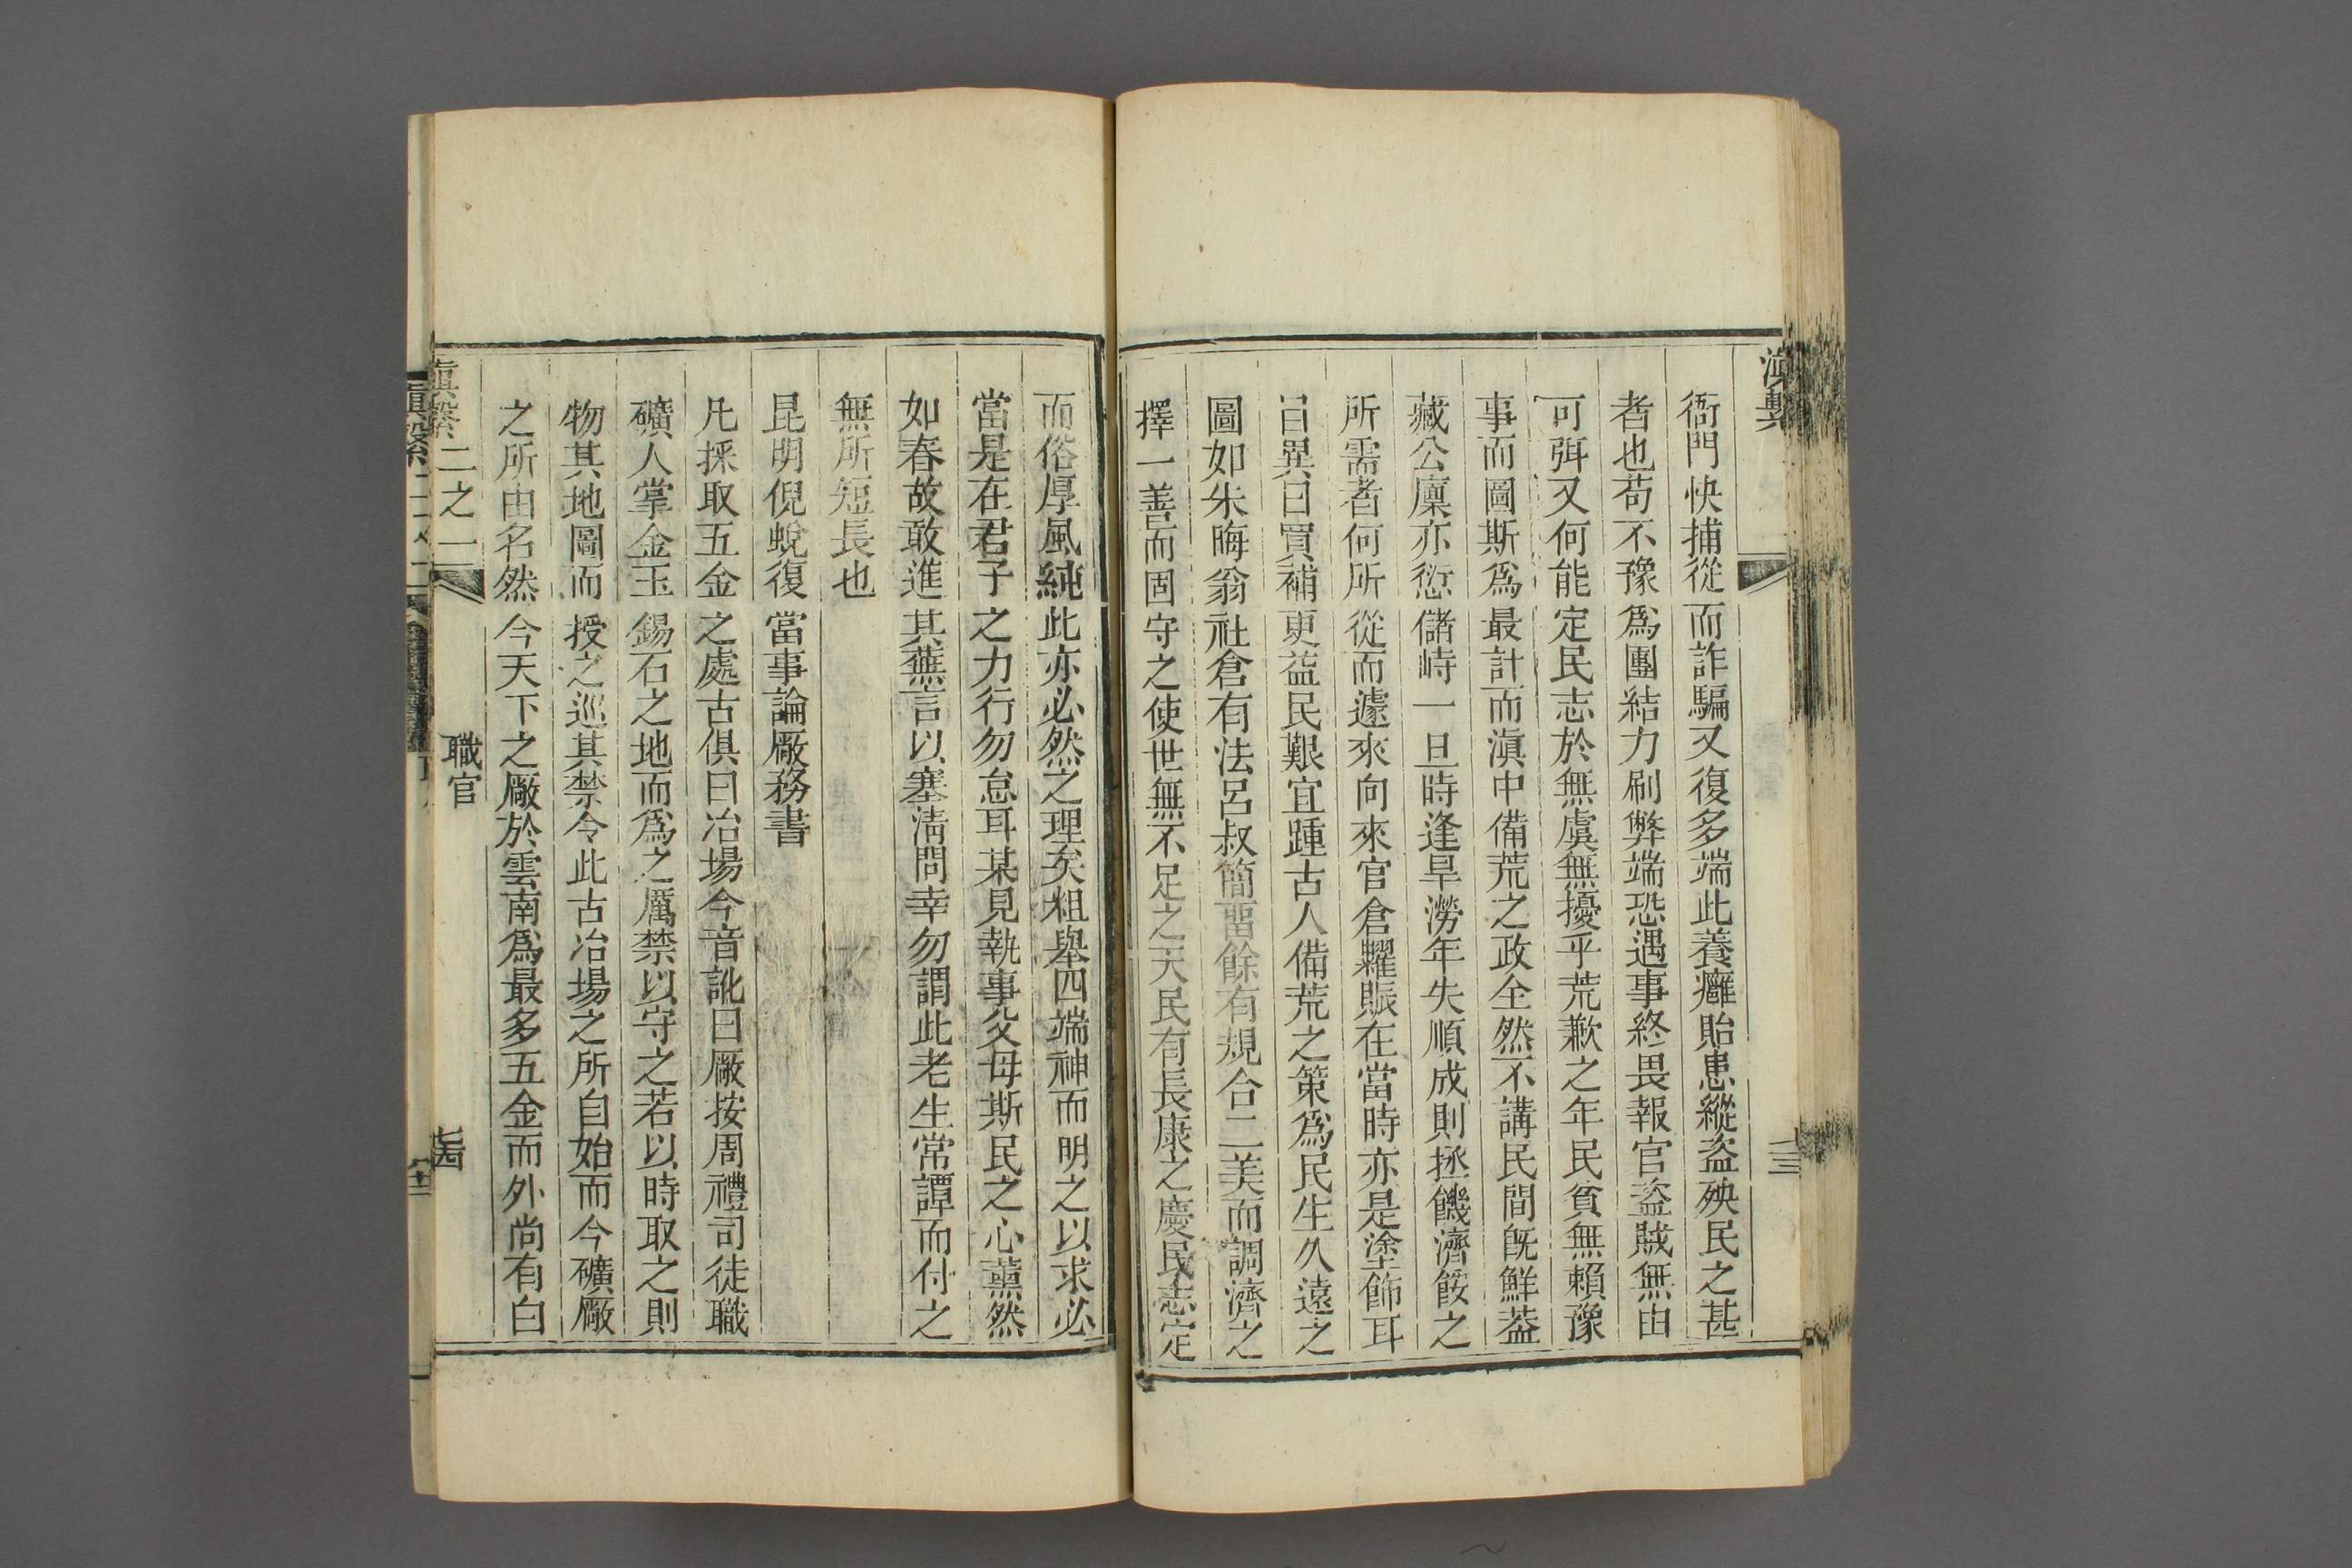 衙門快捕從而詐騙又復多端此養癰貽患縱盜殃民之甚
者也苟不豫爲團結力刷弊端恐遇事終畏報官盜賊無由
可弭又何能定民志於無虞無擾乎荒歉之年民貧無賴豫
事而圖斯爲最計而滇中備荒之政全然不講民間旣鮮葢
藏公廩亦愆儲峙一旦時逢旱澇年失順成則拯饑濟餒之
所需者何所從而遽來向來官倉糶賑在當時亦是塗飾耳
目異日買補更益民艱宜踵古人備荒之策爲民生久遠之
圖如朱晦翁社倉有法呂叔簡畱餘有規合二美而調濟之
擇一善而固守之使世無不足之天民有長康之慶民志定
而俗厚風純此亦必然之理矣粗舉四端神而明之以求必
當是在君子之力行勿怠耳某見執事父母斯民之心藹然
如春故敢進其蕪言以塞清問幸勿謂此老生常譚而付之
無所短長也
昆明倪蛻復當事論廠務書
凡採取五金之處古俱曰冶場今音訛曰廠按周禮司徒職
礦人掌金玉錫石之地而爲之厲禁以守之若以時取之則
物其地圖而授之巡其禁令此古冶場之所自始而今礦廠
之所由名然今天下之廠於雲南爲最多五金而外尚有白
滇繫二之一
職官